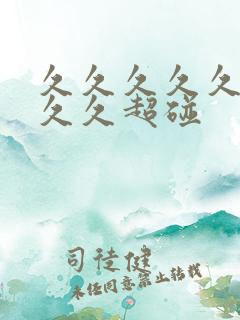 久久久久久
久久超碰
司徒健
未经同意禁止转载